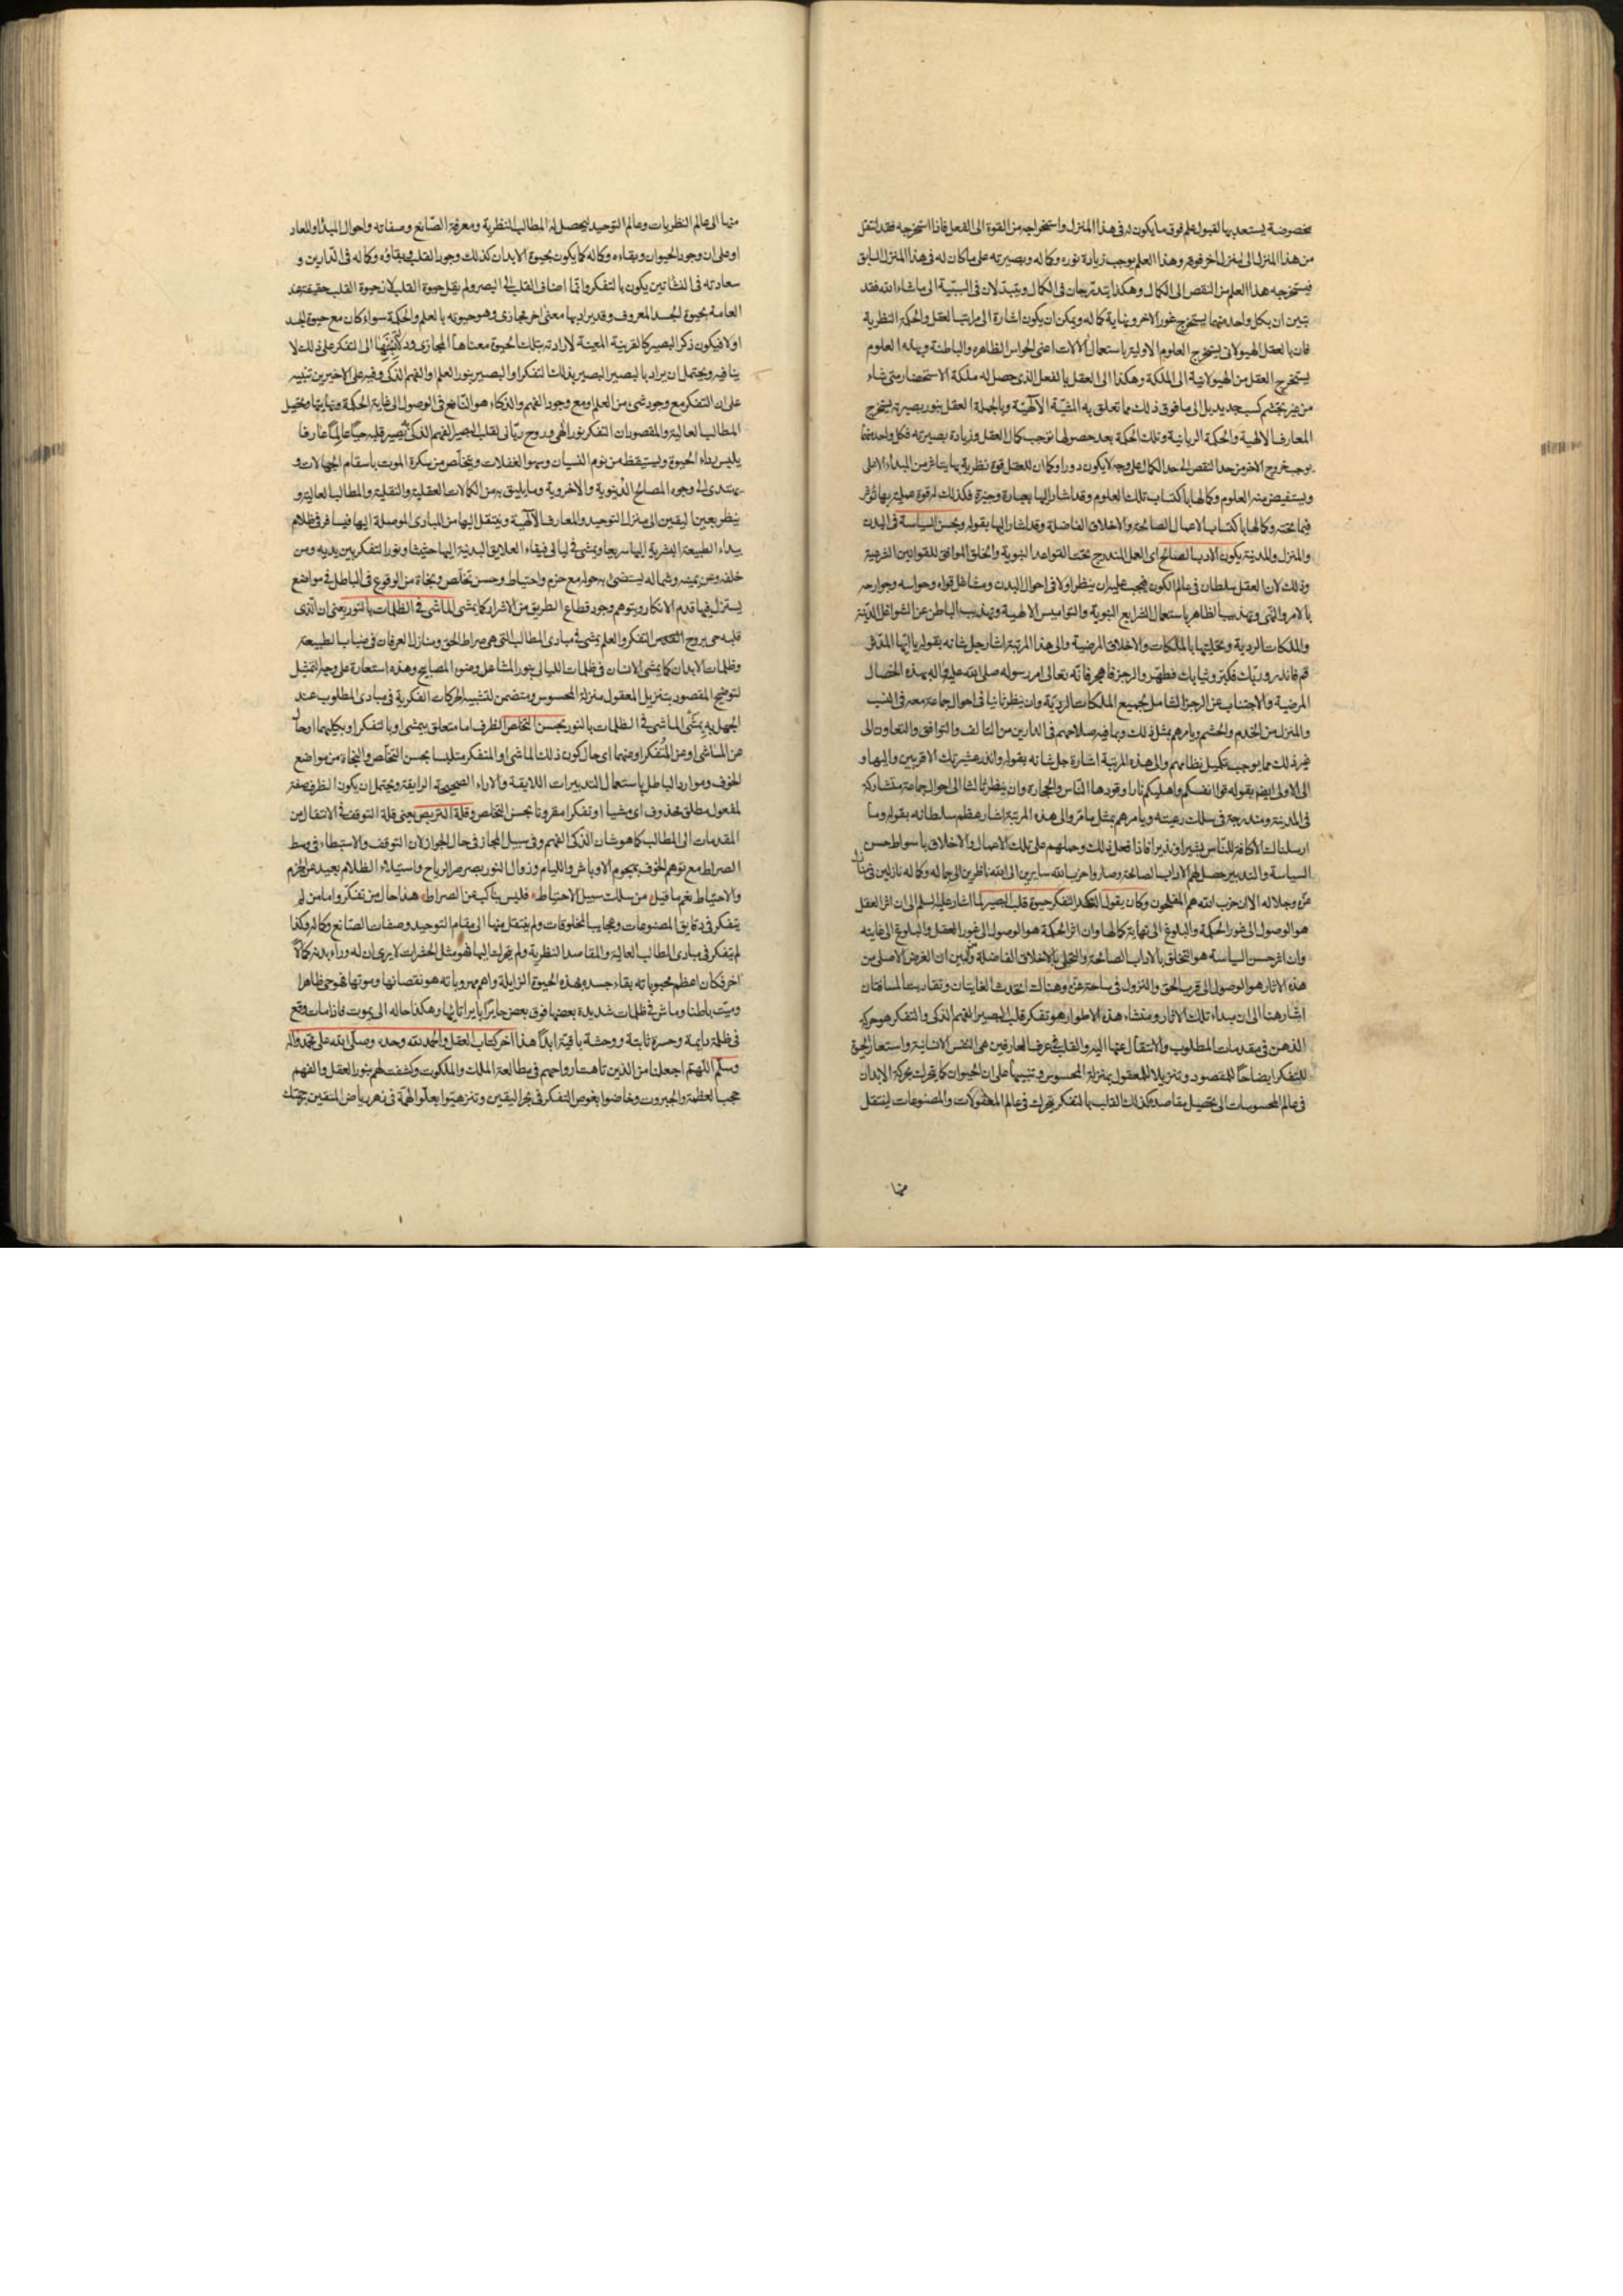 مخصوصة يستعد بها لقبول علم فوق ما يكون له فى هذا المنزل واستخراجه من القوة الى الفعل فاذا استخرجه فقد انتقل
من هذا المنزل الى منزل اخر فوقه وهذا العلم يوجب زيادة نوره وكماله وبصيرته على ما كان له فى هذا المنزل السابق
فيستخرجه هذا العلم من النقص الى الكمال وهكذا يتدرجان فى الكمال ويتبدلان فى السببية الى ما شاء الله فقد
تبين ان بكل واحد منهما يستخرج غور الاخر ونهاية كماله ويمكن ان يكون اشارة الى مراتب العقل والحكمة النظرية
فان بالعقل الهيولانى يستخرج العلوم الاولية باستعمال الالات اعنى الحواس الظاهره والباطنة وبهذه العلوم
يستخرج العقل من الهيولانية الى الملكة وهكذا الى العقل بالفعل الذى حصل له ملكة الاستحضار متى شاء
من غير تجشم كسب جديد بل الى ما فوق ذلك مما تعلق به المشية الالهية وبالجملة العقل بنور بصيرته يستخرج
المعارف الالهية والحكمة الربانية وتلك الحكمة بعد حصولها توجب كمال العقل وزيادة بصيرته فكل واحد منهما
يوجب خروج الاخر من حد النقص الى حد الكمال على وجه لا يكون دورا وكما ان للعقل قوة نظرية بها يتاثر من المبداء الاعلى
ويستفيض منه العلوم وكمالها باكتساب تلك العلوم وقد اشار اليها بعبارة وجيزة فكذلك له قوة عملية بها تؤثر
فيما تحته وكمالها باكتساب الاعمال الصالحة والاخلاق الفاضلة وقد اشار اليها بقوله وبحسن السياسة فى البدن
والمنزل والمدنية يكون الادب الصالح اى العمل المندرج تحت القواعد النبوية والخلق الموافق للقوانين الشرعية
وذلك لان العقل سلطان فى عالم الكون فيجب عليه ان ينظر اولا فى احوال البدن ومشاغل قواه وحواسه وجوارحه
بالامر والنهى وتهذيب الظاهر باستعمال الشرايع النبوية والنواميس الالهية وتهذيب الباطن عن الشواغل الدنية
والملكات الردية وتحليتها بالملكات والاخلاق المرضية والى هذا المرتبة اشار جل شانه بقوله يا ايها المدثر
قم فانذر وربك فكبر وثيابك فطهر والرجز فاهجر فانه تعالى امر رسوله صلى الله عليه واله بهذه الخصال
المرضية والاجتناب عن الرجز الشامل لجميع الملكات الردية وان ينظر ثانيا فى احوال جماعة معه فى النسب
والمنزل من الخدم والحشم ويامرهم بمثل ذلك وبما فيه صلاحهم فى الدارين من التالف والتوافق والتعاون الى
غير ذلك مما يوجب تكميل نظامهم والى هذه المرتبة اشارة جل شانه بقوله وانذر عشيرتك الاقربين واليها و
الى الاولى ايضا بقوله قوا انفسكم واهليكم نارا وقودها الناس والحجارة وان ينظر ثالثا الى احوال جماعة متشاركة
فى المدنية ومندرجة فى سلك رعيته ويامرهم بمثل ما مر والى هذه المرتبة اشار عظم سلطانه بقوله وما
ارسلناك الا كافة للناس بشيرا ونذيرا فاذا فعل ذلك وحملهم على تلك الاعمال والاخلاق باسواط حسن
السياسة والتدبير حصل لهم الاداب الصالحة وصاروا حزب الله سايرين الى الله ناظرين الى جماله وكماله نازلين فى
عزه وجلاله الا ان حزب الله هم المفلحون وكان يقول التفكر حيوة قلب البصير لما اشار عليه السلم الى ان اثر العقل
هو الوصول الى غور الحكمة والبلوغ الى نهاية كمالها وان اثر الحكمة هو الوصول الى غور العقل والبلوغ الى غايته
وان اثر حسن السياسة هو التخلق بالاداب الصالحة والتحلى بالاخلاق الفاضلة وتبين ان الغرض الاصلى من
هذه الاثار هو الوصول الى قرب الحق والنزول فى ساحة عزه وهنالك اتحدت الغايتان وتقاربت المسافتان
اشار هنا الى ان مبداء تلك الاثار ومنشاء هذه الاطوار هو تفكر قلب البصير الفهم الذكى والتفكر هو حركة
الذهن فى مقدمات المطلوب والانتقال عنها اليه والقلب فى عرف العارفين هى النفس الانسانية واستعار الحيوة
للتفكر ايضاحا للمقصود وتنزيلا للمعقول بمنزلة المحسوس وتنبيها على ان الحيوان كما يتحرك بحركة الابدان
فى عالم المحسوسات الى تحصيل مقاصده كذلك القلب بالتفكر يتحرك فى عالم المعقولات والمصنوعات لينتقل
منها
منها الى عالم النظريات وعالم التوحيد ليحصل له المطالب النظرية ومعرفة الصانع وصفاته واحوال المبدا والمعاد
او على ان وجود الحيوان وبقاءه وكماله كما يكون بحيوة الابدان كذلك وجود القلب وبقاؤه وكماله فى الدارين و
سعادته فى النشاتين يكون بالتفكر وانما اضاف القلب الى البصير ولم يقل حيوة القلب لان حيوة القلب حقيقة عند
العامة بحيوة الجسد المعروف وقد يراد بها معنى اخر مجازى وهو حيوته بالعلم والحكمة سواء كان مع حيوة الجسد
او لا فيكون ذكر البصير كالقرينة المعينة لارادته بتلك الحيوة معناها المجازى الى التفكر على ذلك لا
ينافيه ويحتمل ان يراد بالبصير البصير بذلك التفكر او البصير بنور العلم او الفهم الذكى وفيه على الاخيرين تنبيه
على ان التفكر مع وجود شىء من العلم او مع وجود الفهم والذكاء هو النافع فى الوصول الى غاية الحكمة ونهايتها وتحصيل
المطالب العالية والمقصودان التفكر نور الهى وروح ربانى لقلب البصير الفهم الذكى يصير قلبه حيا عالما عارفا
يلبس رداء الحيوة ويستيقظ من نوم النسيان وسهو الغفلات ويتخلص من سكرة الموت باسقام الجهالات و
يهتدى الى وجوه المصالح الدنيوية والاخروية وما يليق به من الكمالات العقلية والنقلية والمطالب العالية و
ينظر بعين اليقين الى منزل التوحيد والمعارف الالهية وينتقل اليها من المبادى الموصلة اليها فيسافر فى ظلام
بيداء الطبيعة البشرية اليها سريعا ويمشى فى ليالى فيفاء العلايق البدنية اليها حثيثا ونور التفكر بين يديه ومن
خلفه وعن يمينه وشماله ليستضىء به حوله مع حزم واحتياط وحسن تخلص ونجاة من الوقوع فى الباطل فى مواضع
يستزل فيها قدم الافكار ويتوهم وجود قطاع الطريق من الاشرار كما يمشى الماشى فى الظلمات بالنور يعنى ان الذى
قلبه حى بروح التفكر والعلم يمشى فى مبادى المطالب التى هى صراط الحق ومنازل العرفان فى ضباب الطبيعة
وظلمات الابدان كما يمشى الانسان فى ظلمات الليالى بنور المشاعل وضوء المصابيح وهذه استعارة على وجه التمثيل
لتوضيح المقصود بتنزيل المعقول منزلة المحسوس ومتضمن لتشبيه الحركات الفكرية فى مبادى المطلوب عند
الجهل به بمشى الماشى فى الظلمات بالنور بحسن التخلص الظرف اما متعلق بيمشى او بالتفكر او بكليهما او حال
عن الماشى او عن المتفكر او عنهما اى حال كون ذلك الماشى او المتفكر متلبسا بحسن التخلص والنجاة من مواضع
الخوف وموارد الباطل باستعمال التدبيرات اللايقة والاراء الصحيحة الرايقة ويحتمل ان يكون الظرف صفة
لمفعول مطلق محذوف اى مشيا او تفكرا مقرونا بحسن التخلص وقلة التربص يعنى قلة التوقف فى الانتقال من
المقدمات الى المطالب كما هو شان الذكى الفهم وفى سبيل المجاز فى حال الجواز لان التوقف والاستبطاء فى وسط
الصراط مع توهم الخوف بهجوم الاوباش واللئام وزوال النور بصرصر الرياح واستيلاء الظلام بعيد عن الحزم
والاحتياط نعم ما قيل من سلك سبيل الاحتياط فليس بناكب عن الصراط هذا حال من تفكر واما من لم
يتفكر فى دقايق المصنوعات وعجايب المخلوقات ولم ينتقل منها الى مقام التوحيد وصفات الصانع وكماله وكذا
لم يتفكر فى مبادى المطالب العالية والمقاصد النظرية ولم يتحرك اليها فهو مثل الحشرات لا يرى ان له وراء بدنه كمالا
اخر فكان اعظم محبوباته بقاء جسده بهذه الحيوة الزايلة واهم مهروباته هو نقصانها وموتها فهو حى ظاهرا
وميت باطنا وماش فى ظلمات شديدة بعضها فوق بعض حايرا بايرا تايها وهكذا حاله الى يموت فاذا مات وقع
فى ظلمة دايمة وحسرة ثابتة ووحشة باقية ابدا هذا اخر كتاب العقل والحمد لله وحده وصلى الله على محمد واله
وسلم اللهم اجعلنا من الذين تاهت ارواحهم فى مطالعة الملك والملكوت وكشفت لهم بنور العقل والفهم
حجب العظمة والجبروت وخاضوا بغوص التفكر فى بحر اليقين وتنزهوا بعلو الهمة فى زهر رياض المتقين برحمتك